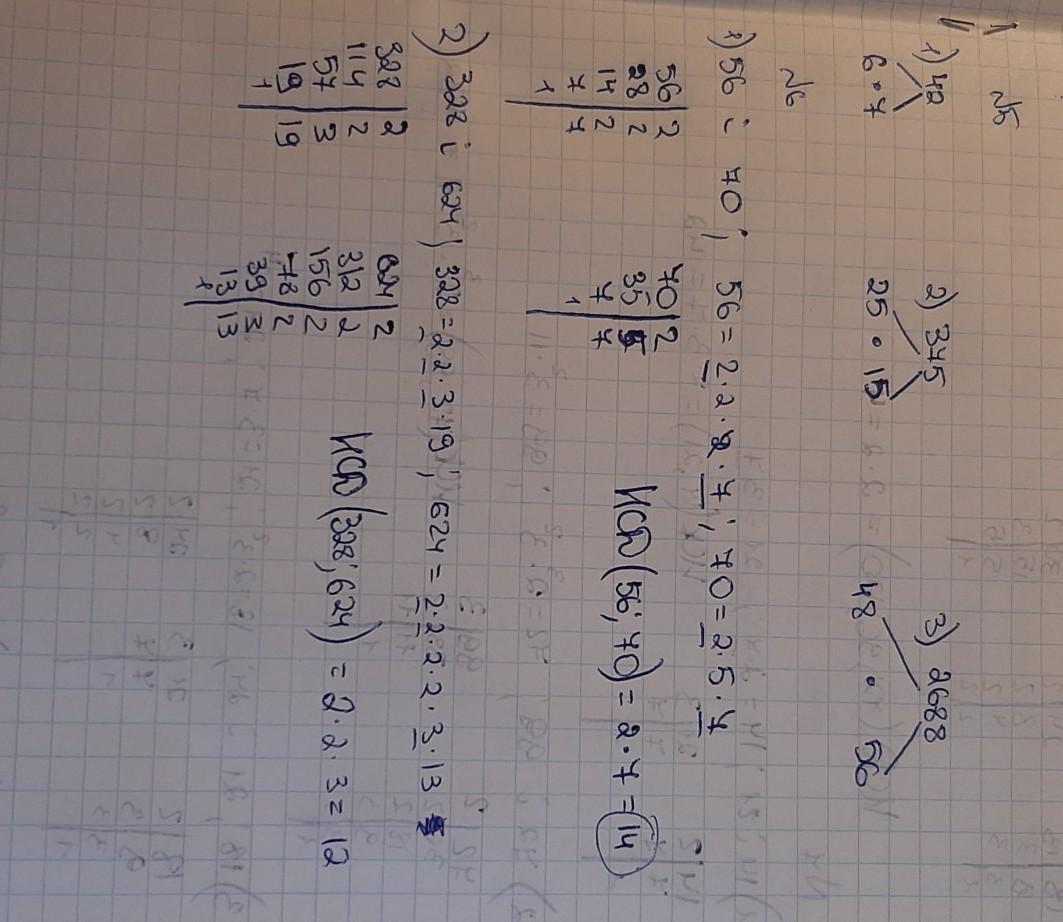 №5
1) 42 2) 375 3) 2688
6 · 7 25 · 15 48 · 56
№6
1) 56 і 70; 56 = 2·2·2·7; 70 = 2·5·7
56 | 2 70 | 2
28 | 2 35 | 5
14 | 2 7 | 7
7 | 7 1
1
НСД (56; 70) = 2·7 = 14
2) 328 і 624; 328 = 2·2·3·19; 624 = 2·2·2·2·3·13
328 | 2 624 | 2
114 | 2 312 | 2
57 | 3 156 | 2
19 | 19 78 | 2
1 39 | 3
13 | 13
1
НСД (328; 624) = 2·2·3 = 12